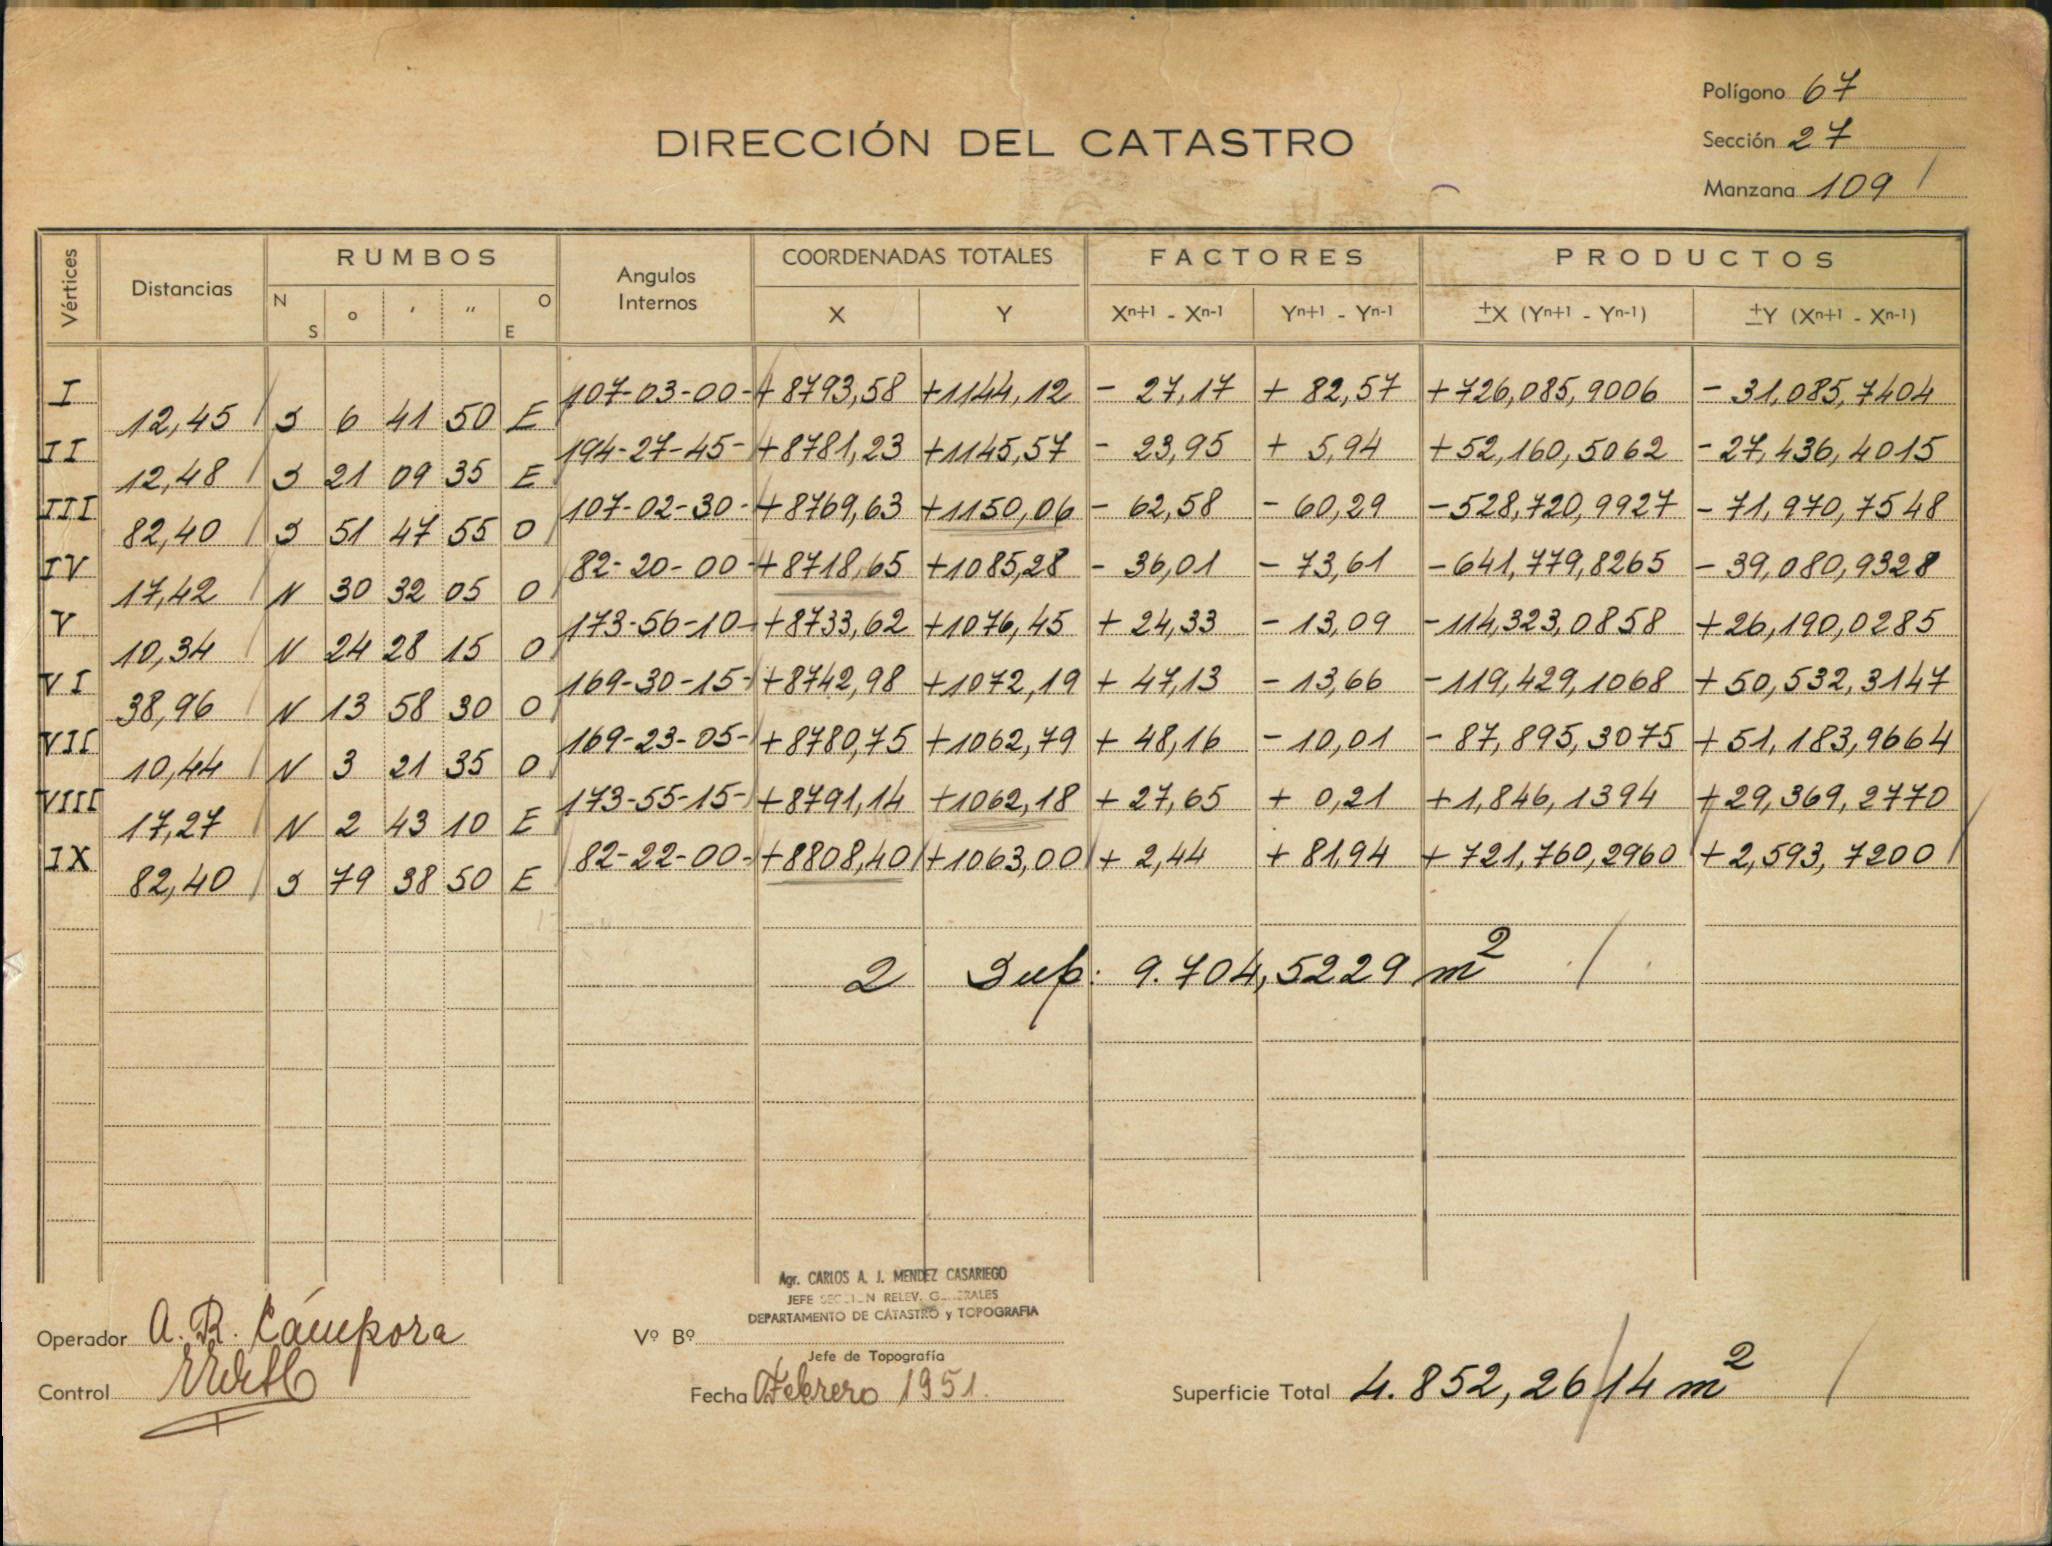 Polígono 67
DIRECCIÓN DEL CATASTRO
Sección 27
Manzana 109
Vértices Distancias RUMBOS Angulos Internos COORDENADAS TOTALES FACTORES PRODUCTOS
N S ° ′ ″ O E X Y Xⁿ⁺¹ - Xⁿ⁻¹ Yⁿ⁺¹ - Yⁿ⁻¹ ±X (Yⁿ⁺¹ - Yⁿ⁻¹) ±Y (Xⁿ⁺¹ - Xⁿ⁻¹)
I 107-03-00- +8793,58 +1144,12 - 27,17 + 82,57 +726,085,9006 - 31,085,7404
12,45 S 6 41 50 E
II 194-27-45- +8781,23 +1145,57 - 23,95 + 5,94 +52,160,5062 - 27,436,4015
12,48 S 21 09 35 E
III 107-02-30- +8769,63 +1150,06 - 62,58 - 60,29 -528,720,9927 - 71,970,7548
82,40 S 51 47 55 O
IV 82-20-00- +8718,65 +1085,28 - 36,01 - 73,61 -641,779,8265 - 39,080,9328
17,42 N 30 32 05 O
V 173-56-10- +8733,62 +1076,45 + 24,33 - 13,09 -114,323,0858 +26,190,0285
10,34 N 24 28 15 O
VI 169-30-15- +8742,98 +1072,19 + 47,13 - 13,66 -119,429,1068 +50,532,3147
38,96 N 13 58 30 O
VII 169-23-05- +8780,75 +1062,79 + 48,16 - 10,01 - 87,895,3075 +51,183,9664
10,44 N 3 21 35 O
VIII 173-55-15- +8791,14 +1062,18 + 27,65 + 0,21 +1,846,1394 +29,369,2770
17,27 N 2 43 10 E
IX 82-22-00- +8808,40 +1063,00 + 2,44 + 81,94 +721,760,2960 +2,593,7200
82,40 S 79 38 50 E
2 Sup: 9.704,5229 m²
Agr. CARLOS A. J. MENDEZ CASARIEGO
JEFE RELEV.
DEPARTAMENTO DE CATASTRO y TOPOGRAFIA
Operador A. R. Cámpora
Vº Bº
Jefe de Topografía
Control
Fecha Febrero 1951.
Superficie Total 4.852,26/14 m²